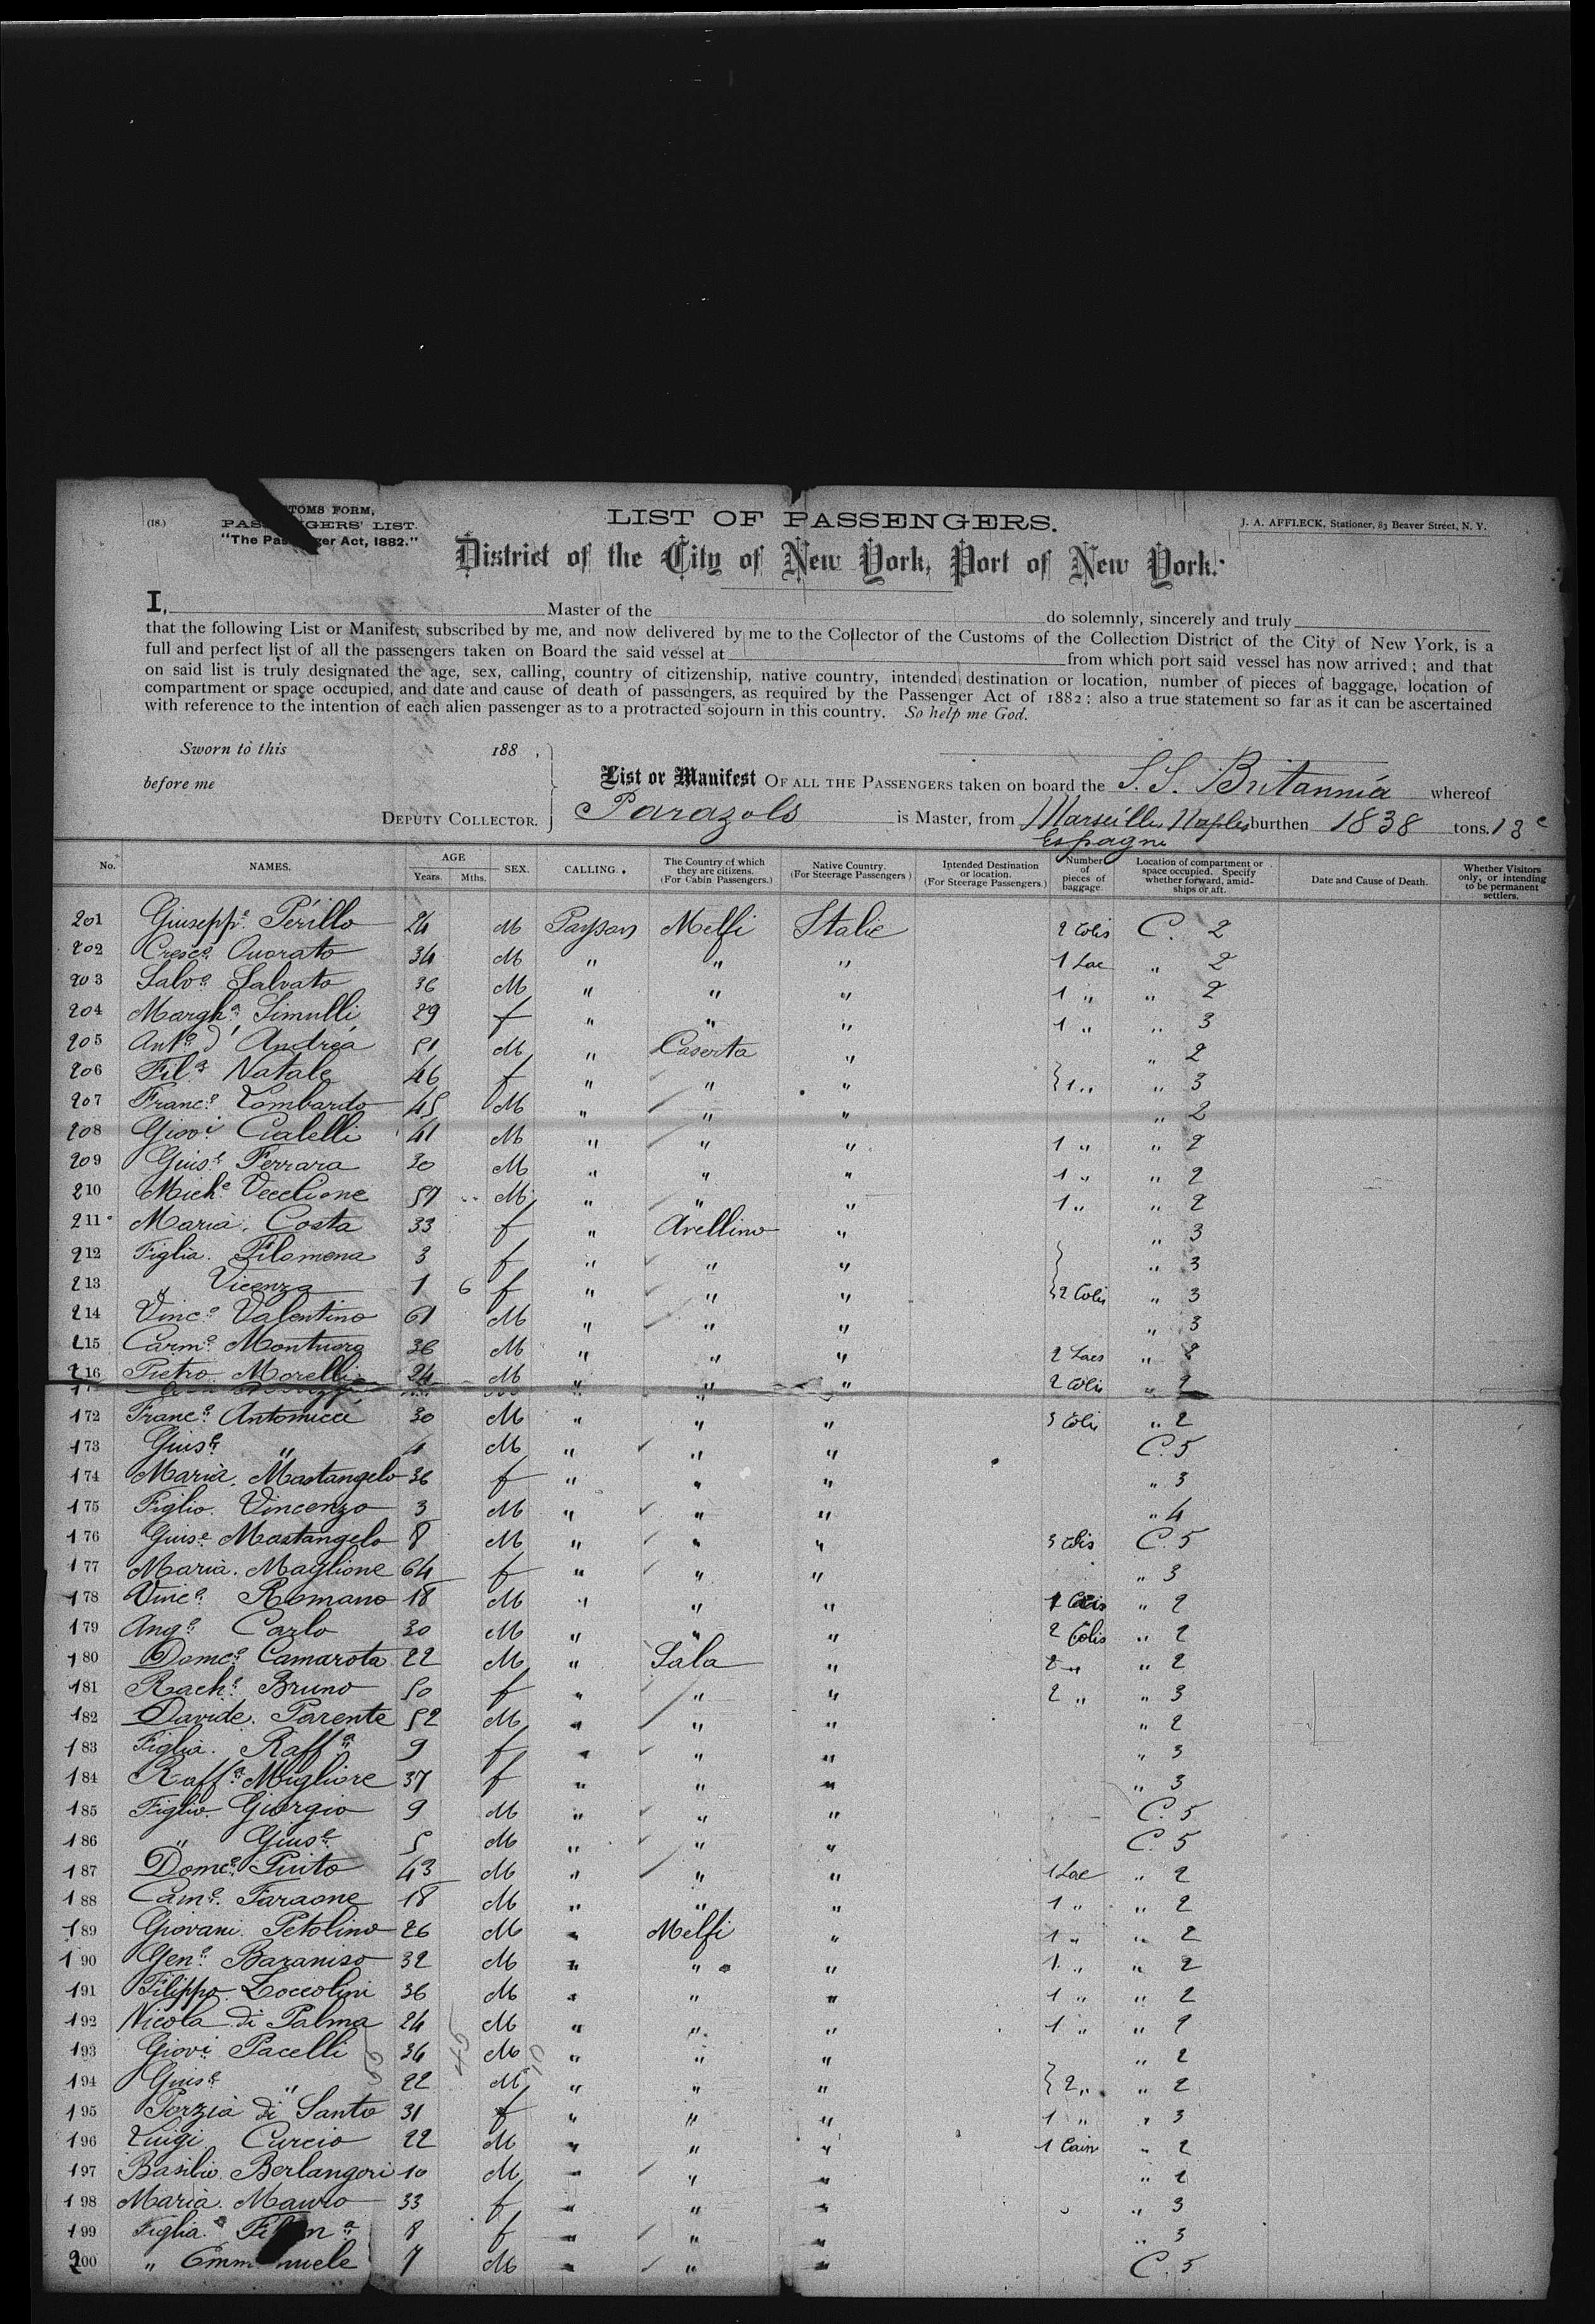 (18.)
TOMS FORM,
PAS GERS' LIST.
"The Pas ger Act, 1882."
LIST OF PASSENGERS.
J. A. AFFLECK, Stationer, 83 Beaver Street, N. Y.
District of the City of New York, Port of New York.
I, Master of the do solemnly, sincerely and truly
that the following List or Manifest, subscribed by me, and now delivered by me to the Collector of the Customs of the Collection District of the City of New York, is a
full and perfect list of all the passengers taken on Board the said vessel at from which port said vessel has now arrived; and that
on said list is truly designated the age, sex, calling, country of citizenship, native country, intended destination or location, number of pieces of baggage, location of
compartment or space occupied, and date and cause of death of passengers, as required by the Passenger Act of 1882: also a true statement so far as it can be ascertained
with reference to the intention of each alien passenger as to a protracted sojourn in this country. So help me God.
Sworn to this 188 .
before me
DEPUTY COLLECTOR.
List or Manifest OF ALL THE PASSENGERS taken on board the S.S. Britannia whereof
Parazols is Master, from Marseilles Naples burthen 1838 tons.
Espagne
No. NAMES. AGE Years. Mths. SEX. CALLING. The Country of which they are citizens. (For Cabin Passengers.) Native Country. (For Steerage Passengers) Intended Destination or location. (For Steerage Passengers.) Number of pieces of baggage. Location of compartment or space occupied. Specify whether forward, amidships or aft. Date and Cause of Death. Whether Visitors only, or intending to be permanent settlers.
201 Giuseppe Perillo 24 M Paysan Melfi Italie 2 Colis C. 2
202 Cresco Quorato 34 M " " " 1 Sac " 2
203 Salvo Salvato 36 M " " " 1 " " 2
204 Margha Simulli 29 f " " " 1 " " 3
205 Anto d'Andrea 51 M " Caserta " " 2
206 Fila Natale 46 f " " " 1 " " 3
207 Franco Lombardo 45 M " " " " 2
208 Giovi Cialelli 41 M " " " 1 " " 2
209 Guise Ferrara 30 M " " " 1 " " 2
210 Miche Vecchione 57 M " " " 1 " " 2
211 Maria Costa 33 f " Avellino " " 3
212 Figlia Filomena 3 f " " " " 3
213 " Vicenza 1 6 f " " " 2 Colis " 3
214 Vinco Valentino 61 M " " " " 3
215 Carmo Montuoro 36 M " " " 2 Sacs " 2
216 Pietro Morelli 24 M " " " 2 Colis " 2
172 Franco Antonucci 30 M " " " 3 Colis " 2
173 Guise " M " " " C. 5
174 Maria Mastangelo 36 f " " " " 3
175 Figlio Vincenzo 3 M " " " " 4
176 Guise Mastangelo 8 M " " " 3 Colis C. 5
177 Maria Maglione 64 f " " " " 3
178 Vinco Romano 18 M " " " 1 Colis " 2
179 Ango Carlo 30 M " " " 2 Colis " 2
180 Domco Camarota 22 M " Sala " 2 " " 2
181 Rache Bruno 50 f " " " 2 " " 3
182 Davide Parente 52 M " " " " 2
183 Figlia Raffa 9 f " " " " 3
184 Raffa Migliore 37 f " " " " 3
185 Figlio Giorgio 9 M " " " C. 5
186 " Giuse 5 M " " " C. 5
187 Domco Pinto 43 M " " " 1 Sac " 2
188 Camo Faraone 18 M " " " 1 " " 2
189 Giovani Petolino 26 M " Melfi " 1 " " 2
190 Geno Baraniso 32 M " " " 1 " " 2
191 Filippo Loccolini 36 M " " " 1 " " 2
192 Nicola di Palma 24 M " " " 1 " " 2
193 Giovi Pacelli 36 M " " " " 2
194 Guise " 22 M " " " 2 " " 2
195 Porzia di Santo 31 f " " " 1 " " 3
196 Luigi Curcio 22 M " " " 1 " 2
197 Basilio Berlangori 10 M " " " " 2
198 Maria Mauro 33 f " " " " 3
199 Figlia 8 f " " " " 3
200 " Emm nuele 7 M " " " C. 5